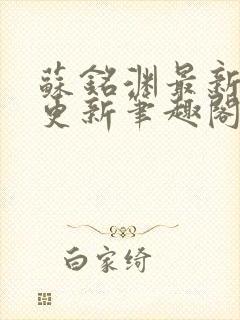 蘇銘淵最新
更新筆趣閣
白家綺